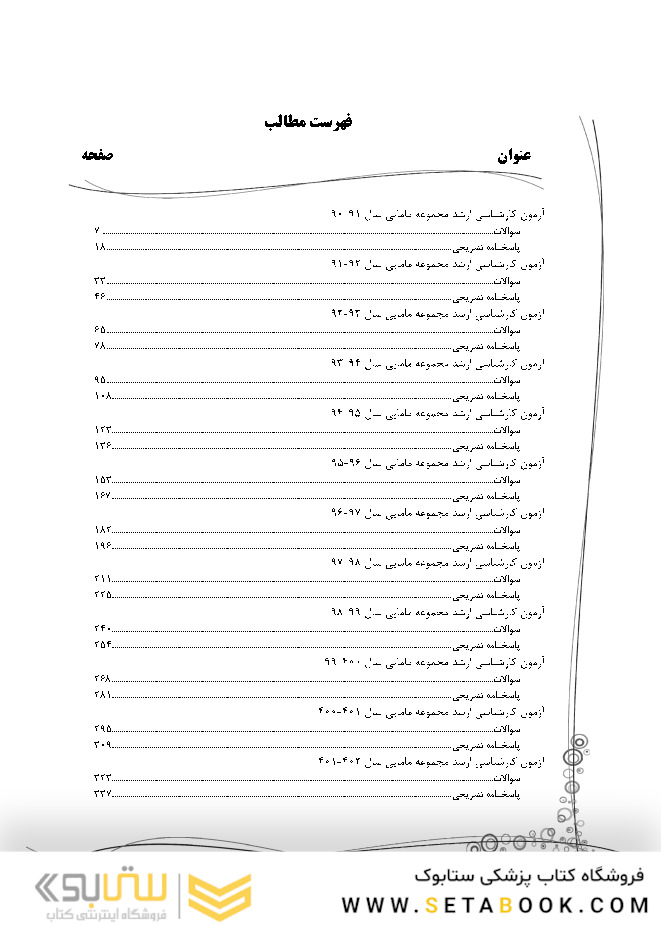 فهرست مطالب
عنوان صفحه
آزمون کارشناسی ارشد مجموعه مامایی سال ۹۱-۹۰
سوالات ۷
پاسخنامه تشریحی ۱۸
آزمون کارشناسی ارشد مجموعه مامایی سال ۹۲-۹۱
سوالات ۳۳
پاسخنامه تشریحی ۴۶
آزمون کارشناسی ارشد مجموعه مامایی سال ۹۳-۹۲
سوالات ۶۵
پاسخنامه تشریحی ۷۸
آزمون کارشناسی ارشد مجموعه مامایی سال ۹۴-۹۳
سوالات ۹۵
پاسخنامه تشریحی ۱۰۸
آزمون کارشناسی ارشد مجموعه مامایی سال ۹۵-۹۴
سوالات ۱۲۳
پاسخنامه تشریحی ۱۳۶
آزمون کارشناسی ارشد مجموعه مامایی سال ۹۶-۹۵
سوالات ۱۵۳
پاسخنامه تشریحی ۱۶۷
آزمون کارشناسی ارشد مجموعه مامایی سال ۹۷-۹۶
سوالات ۱۸۲
پاسخنامه تشریحی ۱۹۶
آزمون کارشناسی ارشد مجموعه مامایی سال ۹۸-۹۷
سوالات ۲۱۱
پاسخنامه تشریحی ۲۲۵
آزمون کارشناسی ارشد مجموعه مامایی سال ۹۹-۹۸
سوالات ۲۴۰
پاسخنامه تشریحی ۲۵۴
آزمون کارشناسی ارشد مجموعه مامایی سال ۴۰۰-۹۹
سوالات ۲۶۸
پاسخنامه تشریحی ۲۸۱
آزمون کارشناسی ارشد مجموعه مامایی سال ۴۰۱-۴۰۰
سوالات ۲۹۵
پاسخنامه تشریحی ۳۰۹
آزمون کارشناسی ارشد مجموعه مامایی سال ۴۰۲-۴۰۱
سوالات ۳۲۳
پاسخنامه تشریحی ۳۳۷
فروشگاه کتاب پزشکی ستابوک
WWW.SETABOOK.COM
ستابوک
فروشگاه اینترنتی کتاب